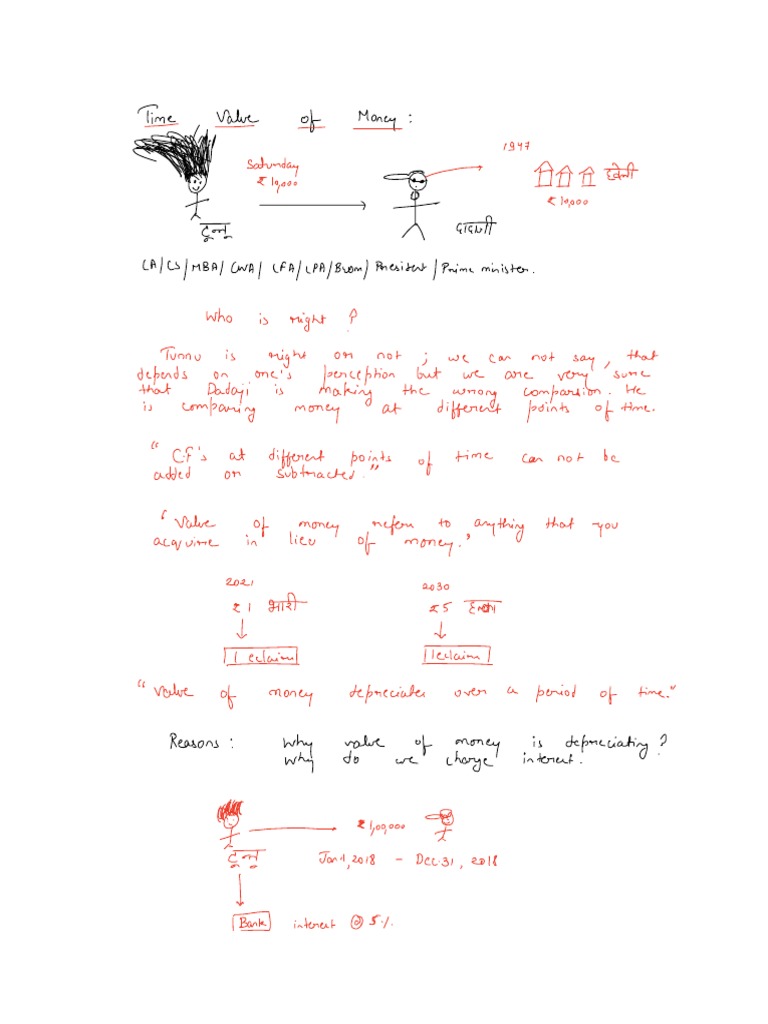 Time Value of Money :
1947
Saturday
₹ 10,000
हवेली
₹ 10,000
टुन्नू
दादाजी
CA/CS/MBA/CWA/ CFA/CPA/Bcom/President/Prime minister.
Who is right ?
Tunnu is right or not ; we can not say, that
depends on one's perception but we are very sure
that Dadaji is making the wrong comparsion. He
is comparing money at different points of time.
" C.F's at different points of time can not be
added or subtracted."
" Value of money refers to anything that you
acquire in lieu of money."
2021
2030
₹ 1 भारी
₹ 5 हल्का
1 eclairs
1 eclairs
" Value of money depreciates over a period of time."
Reasons : Why value of money is depreciating ?
Why do we charge interest.
₹ 1,00,000
टुन्नू
Jan 1, 2018 - Dec. 31, 2018
Bank
interest @ 5 %.